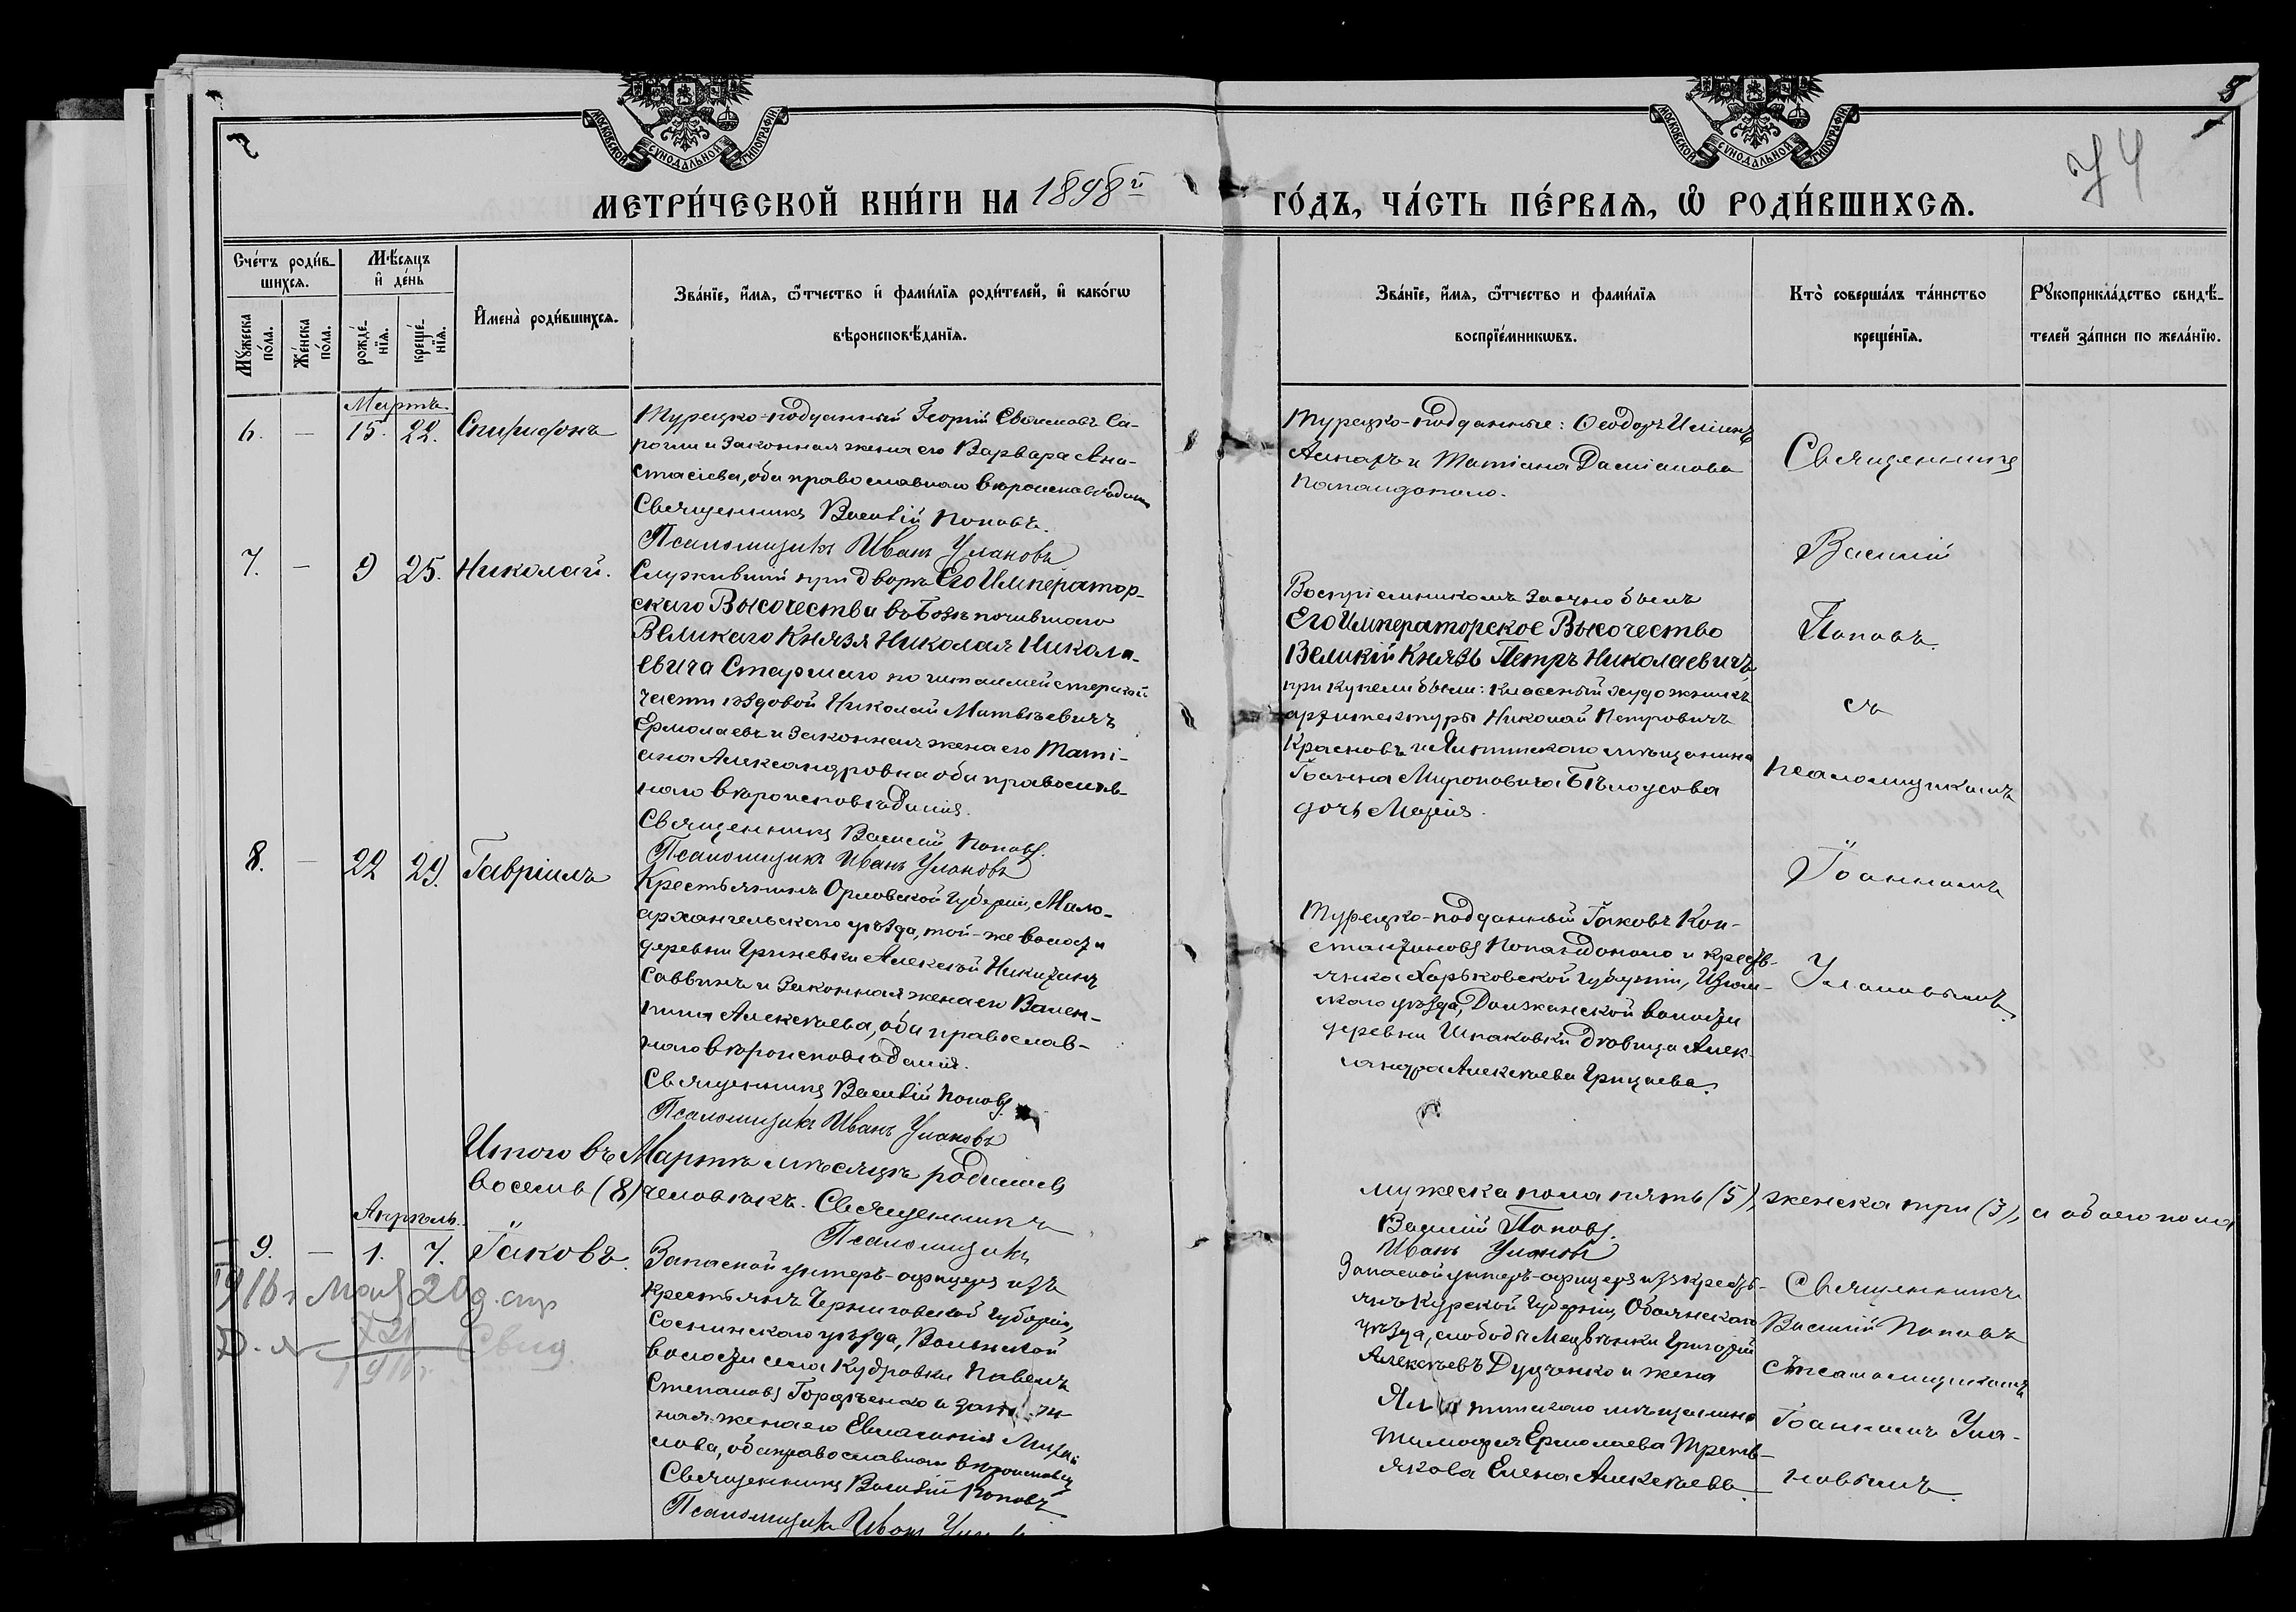 МОСКОВСКОЙ СУНОДАЛЬНОЙ ТИПОГРАФІИ
МОСКОВСКОЙ СУНОДАЛЬНОЙ ТИПОГРАФІИ
8
74
МЕТРИ́ЧЕСКОЙ КНИ́ГИ НА 1898й ГО́ДЪ, ЧА́СТЬ ПЕ́РВАЯ, Ѡ РОДИ́ВШИХСЯ.
Сче́тъ роди́в-
шихся.
Мѣ́сяцъ
и҆ де́нь
Му́жеска
по́ла.
Же́нска
по́ла.
рожде́-
нїя.
креще́-
нїя.
И҆мена̀ роди́вшихся.
Зва́нїе, и҆́мя, ѻ҆́тчество и҆ фами́лїя роди́телей, и҆ како́гѡ
вѣроисповѣ́данїя.
Зва́нїе, и҆́мя, ѻ҆́тчество и фами́лїя
воспрїе́мникѡвъ.
Кто̀ соверша́лъ та́инство
креще́нїя.
Рꙋкоприкла́дство свидѣ́-
телей за́писи по жела́нїю.
Мартъ.
6. — 15. 22. Спиридонъ
Турецко-подданный Георгій Са-
и законная жена его Варвара Ана-
стасіева, оба православнаго вѣроисповѣданія
Священникъ Василій Поповъ.
Псаломщикъ Иванъ Улановъ
Турецко-подданные: Ѳеодоръ Ильинъ
и Татіана Даміанова
Попандопуло.
Священникъ
Василій
Поповъ
съ
псаломщикомъ
Іоанномъ
Улановымъ.
7. — 9 25. Николай.
Служившій при дворѣ Его Император-
скаго Высочества въ Бозѣ почившаго
Великаго Князя Николая Никола-
евича Старшаго по шталмейстерской
части ѣздовой Николай Матвѣевичъ
Ермолаевъ и законная жена его Тати-
ана Александровна оба православ-
наго вѣроисповѣданія.
Священникъ Василій Поповъ.
Псаломщикъ Иванъ Улановъ
Воспріемникомъ заочно былъ
Его Императорское Высочество
Великій Князь Петръ Николаевичъ
при купели были: классный художникъ
архитектуры Николай Петровичъ
Красновъ и Ялтинскаго мѣщанина
Іоанна Мироновича Бѣлоусова
дочь Марія.
8. — 22 29. Гавріилъ
Крестьянинъ Орловской губерніи, Мало-
архангельскаго уѣзда, той-же волости
деревни Гриневки Алексѣй Никитинъ
Саввинъ и законная жена его Вален-
тина Алексѣева, оба православ-
наго вѣроисповѣданія.
Священникъ Василій Поповъ.
Псаломщикъ Иванъ Улановъ
Турецко-подданный Іаковъ Кон-
стантиновъ Попандопуло и кресть-
янка Харьковской губерніи, Изюм-
скаго уѣзда, Должанской волости
деревни Шпаковки дѣвица Алек-
сандра Алексѣева Грицаева.
Итого въ Мартѣ мѣсяцѣ родилось мужеска пола пять (5), женска три (3), а обоего пола
восемь (8) человѣкъ. Священникъ Василій Поповъ.
Псаломщикъ Иванъ Улановъ
Апрѣль.
9. — 1. 7. Іаковъ.
1916 г Мая 20 д.
1916 г. Свид.
Запасной унтеръ-офицеръ изъ
крестьянъ Черниговской губерніи,
Сосницкаго уѣзда, Волынской
волости села Кудровки Павелъ
Степановъ и закон-
ная жена его Евлампія
оба православнаго вѣроисповѣд
Священникъ Василій Поповъ
Псаломщикъ Иванъ
Запасной унтеръ-офицеръ изъ кресть-
янъ Курской губерніи, Обоянскаго
уѣзда, слободы Медвѣнки Григорій
Алексѣевъ Дудченко и жена
Ялтинскаго мѣщанина
Тимофея Ермолаева Треть-
якова Елена Алексѣева.
Священникъ
Василій Поповъ
съ псаломщикомъ
Іоанномъ Ула-
новымъ.